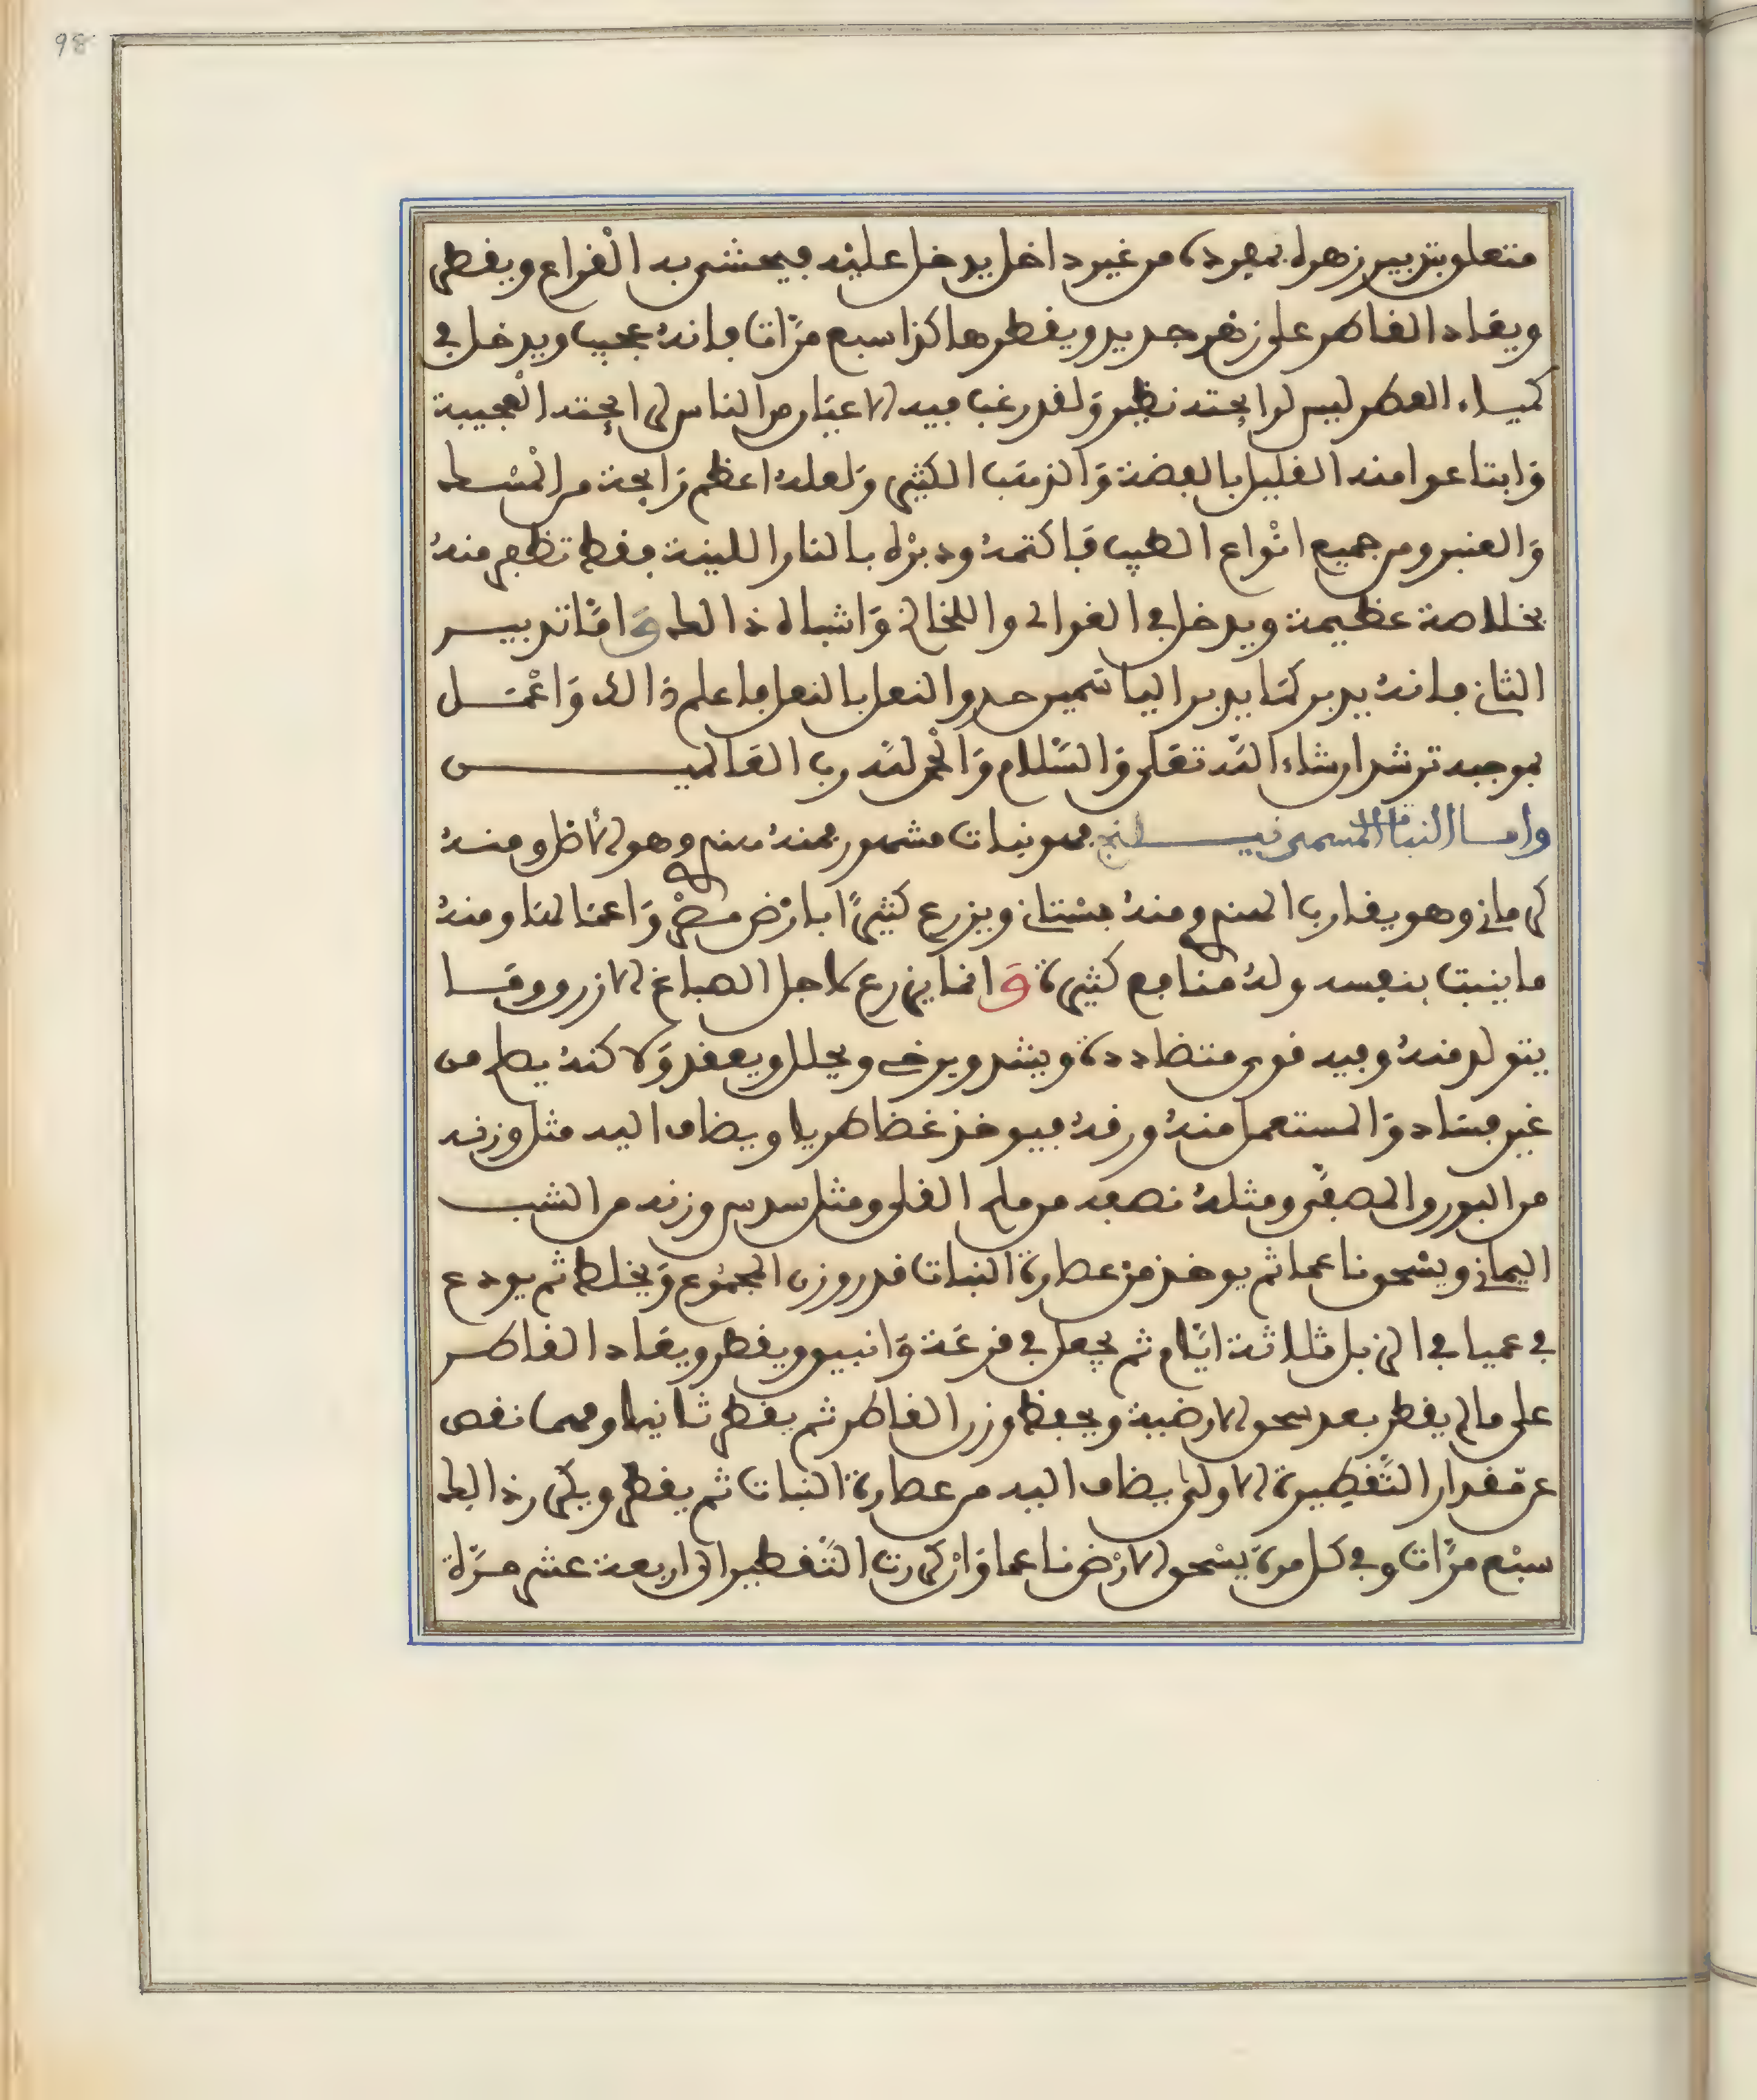 98
متعلق بتدبير زهره بمفرده من غير داخل يدخل عليه فيحشى به القراع ويقطر
ويعاد القاطر على زهر جديد ويقطر هاكذا سبع مرّات فإنه عجيب ويدخل في
كمياء العطر ليس لرايحته نظير وَلقد رغب فيه الاعيَار من الناس لرايحته العجيبة
وَابتاعوا منه القليل بالفضة وَالذهب الكثير وَلعله اعظم رَايحة من الْمسْك
وَالعنبر ومن جميع انْواع الطيب فاكتمه ودبرْه بالنار اللينة فقط تظهر منه
بخلاصة عظيمة ويدخل في الغوالي واللخالخ وَاشباه ذالك وَامَّا تدبيـر
الثاني فانه يدبر كمَا يدبر الياسمين حدو النعل بالنعل فاعلم ذالك وَاعْمَـل
بموجبه ترشد ان شاء اللّه تعَلى وَالسَّلام وَالْحمد للّه رب العَالميـــن
وامــا النبات المسمى نيـــلنج فهو نبات مشهور فمنه هندي وهو الأظر ومنـه
كرماني وهو يقارب الهندي ومنه بستاني ويزرع كثيرًا بارْض مصْر وَاعمالهَا ومنه
ما ينبت بنفسه وله منافع كثيرة وَانما يزرع لاجل الصباغ الازرو ومَـا
يتولد منه وفيه قوى متضاددة ويشد ويرخي ويحلل ويعقد وَلاكنه يصلح من
غير فساد وَالمستعمل منه ورقه فيوخذ غضا طريا ويضاف اليه مثل وزنه
من البورو المصفّى ومثله نصفه من ملح القلي ومثل سدس وزنه من الشب
اليماني ويسْحق ناعما ثم يوخذ من عصارة النبات قدر وزن المجمُوع وَيخلط ثم يودع
في عميا في الزبل ثلاثة ايّام ثم يجعل في قرعَة وَانبيق ويقطر ويعَاد القاطـر
على ما لم يقطر بعد سحق الارضية ويحفظ وزن القاطر ثم يقطر ثانيا ومهما نقص
عن مقدار التَّقطِيرة الاولى يضاف اليه من عصارة النبات ثم يقطر ويكرر ذالك
سبْع مرّات وفي كل مرة يسْحق الارْض ناعما وَانْ كررت التَّقطير الى اربعة عشر مرَّة